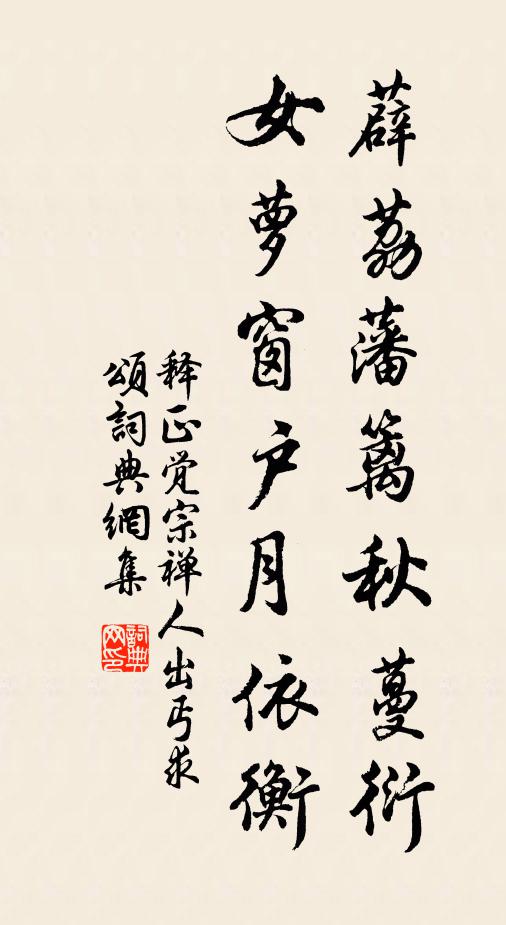 薜荔藩篱秋蔓衍
女萝窗户月依衡
释正觉宗禅人出丐求
颂词典网集
词典
网印